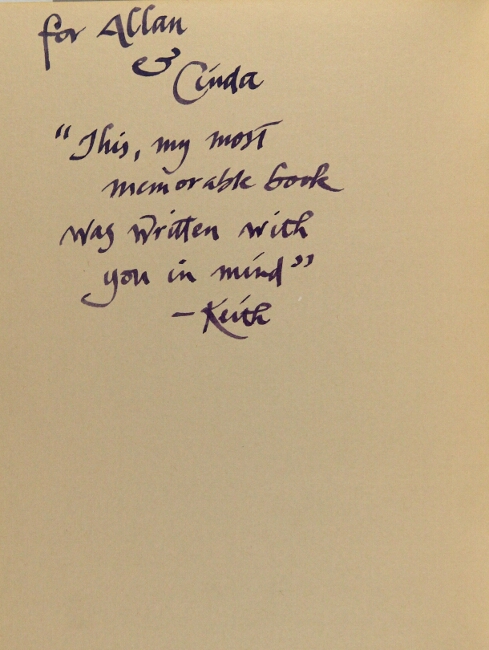 for Allan
&
Cinda
"This, my most
memorable book
was written with
you in mind"
- Keith